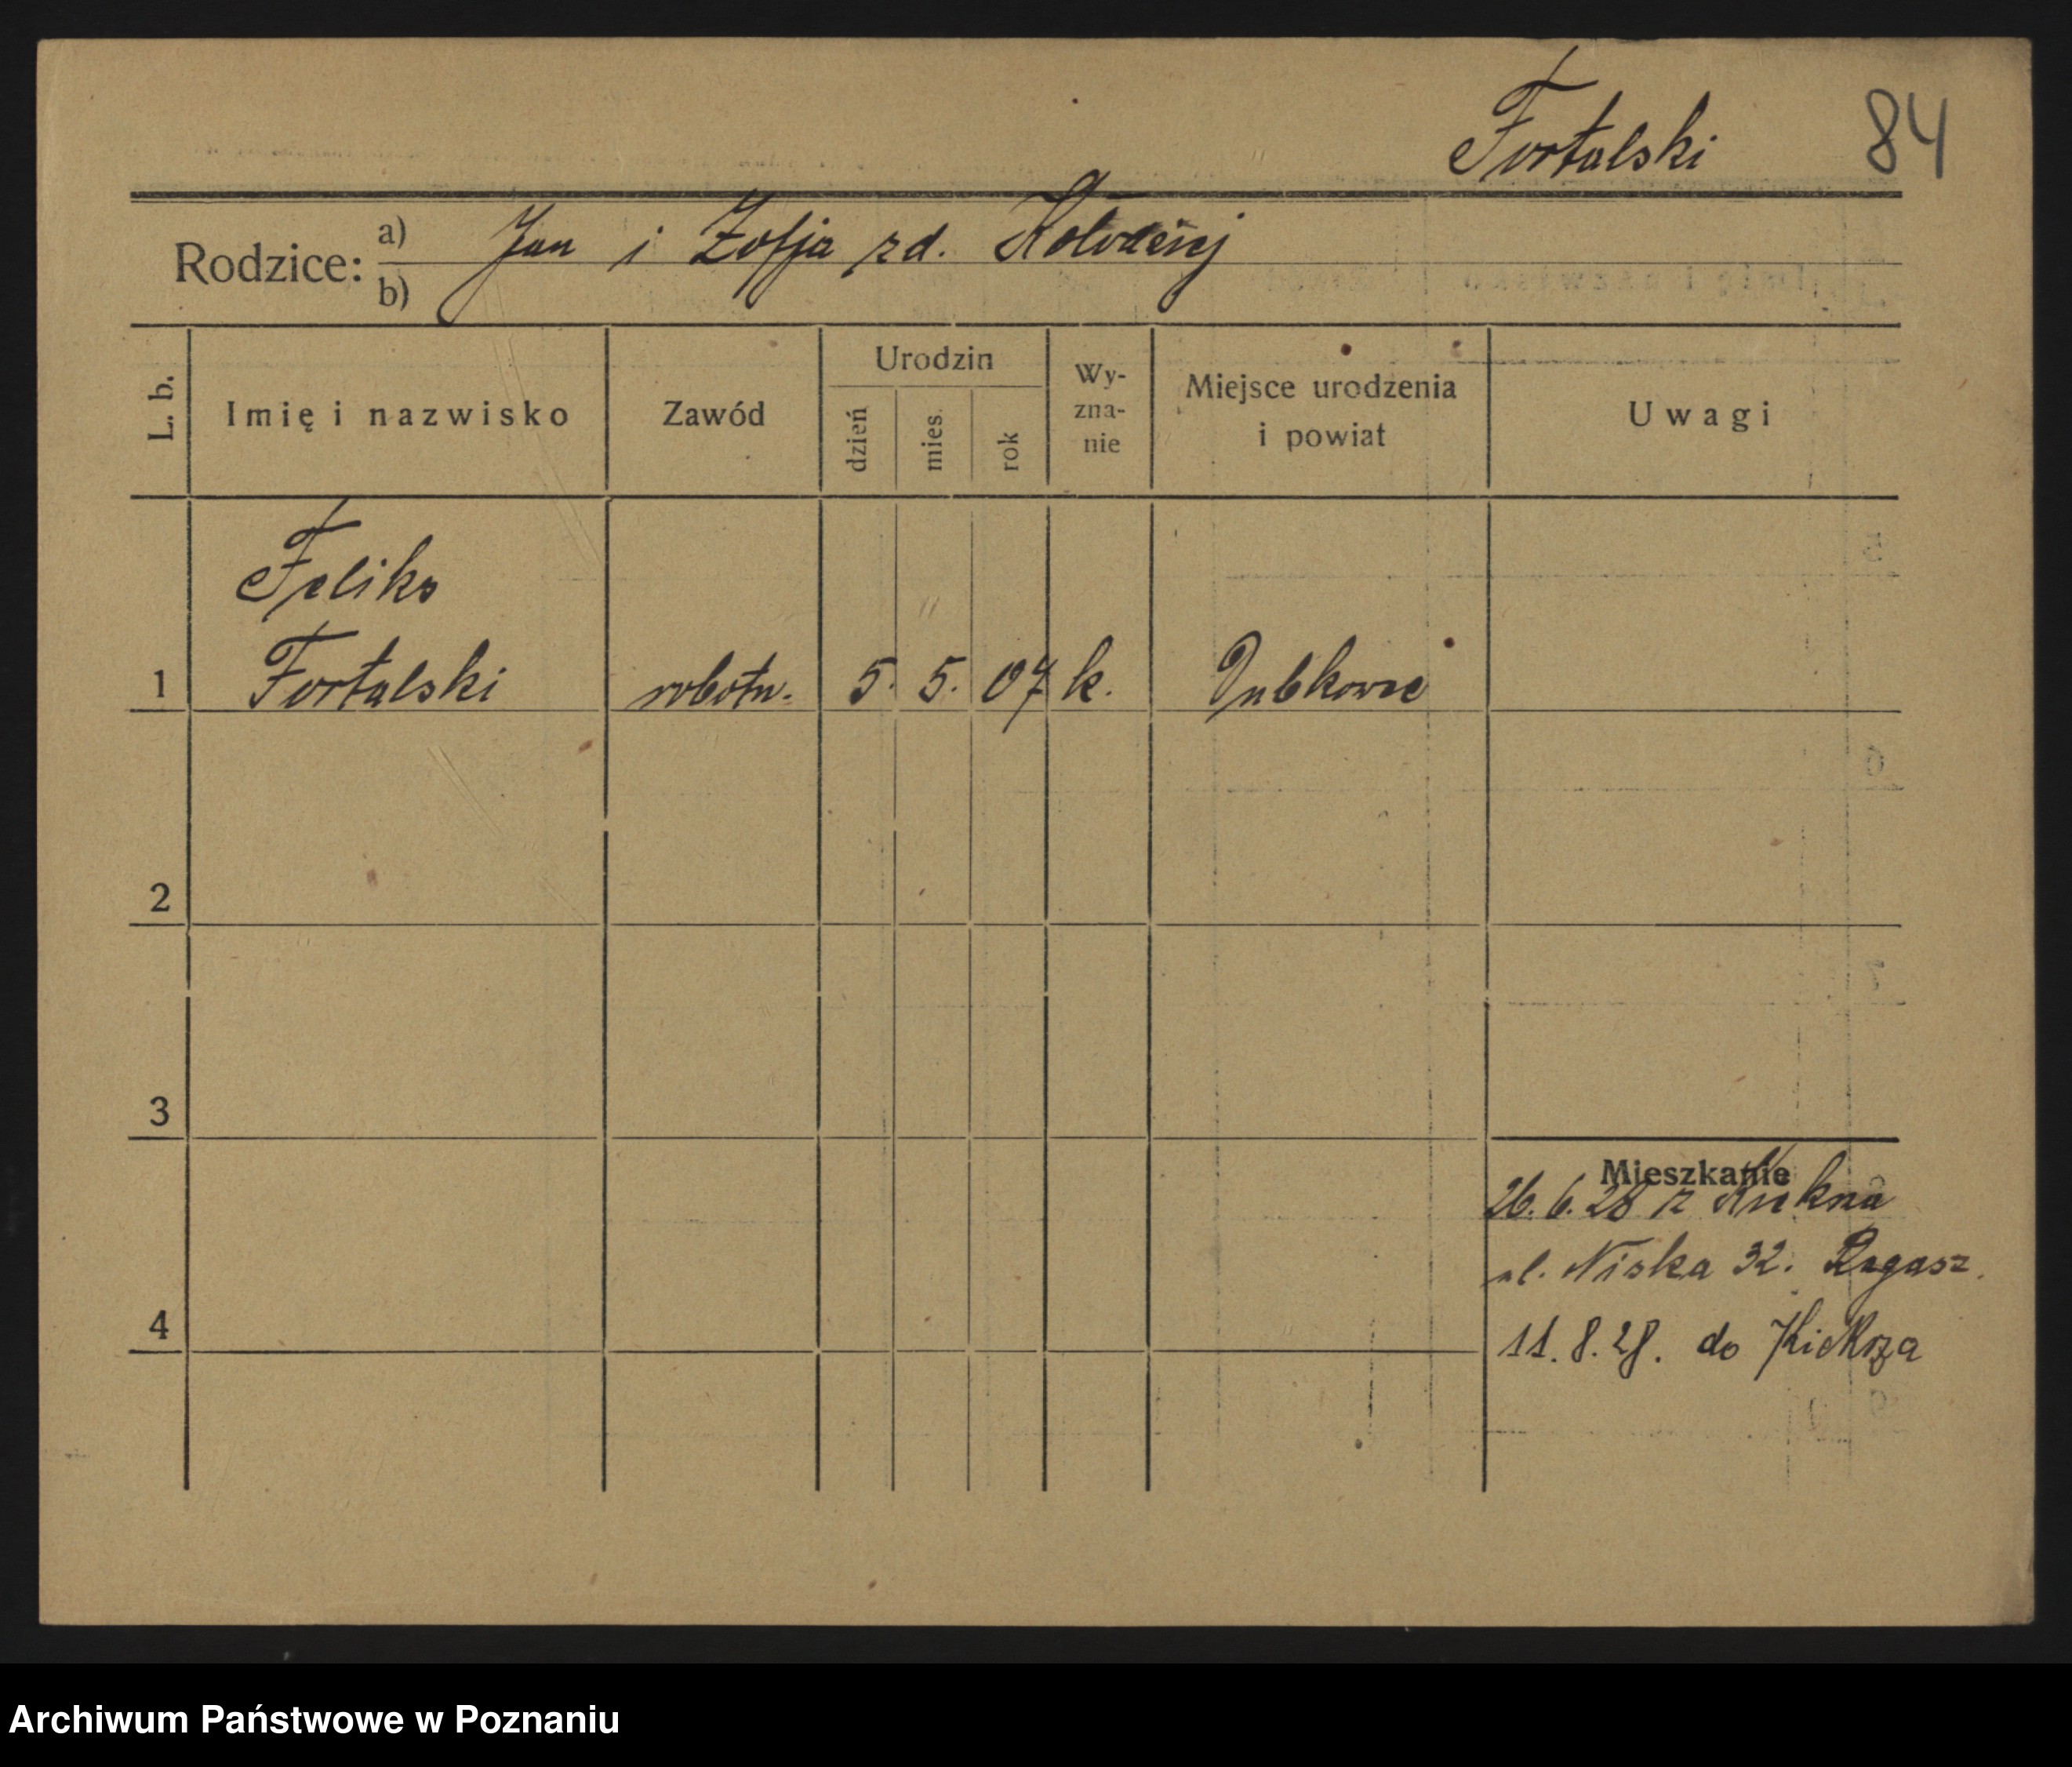 Fortalski 84
Rodzice: a) Jan i Zofja zd. Kołodziej
b)
L. b. Imię i nazwisko Zawód Urodzin dzień mies. rok Wy-zna-nie Miejsce urodzenia i powiat Uwagi
Feliks
1 Fortalski robotn. 5. 5. 07 k.
2
3
Mieszkanie
26. 6. 28 z
ul. Niska 32. Ragasz.
4
11. 8. 28. do Kiekrza
Archiwum Państwowe w Poznaniu